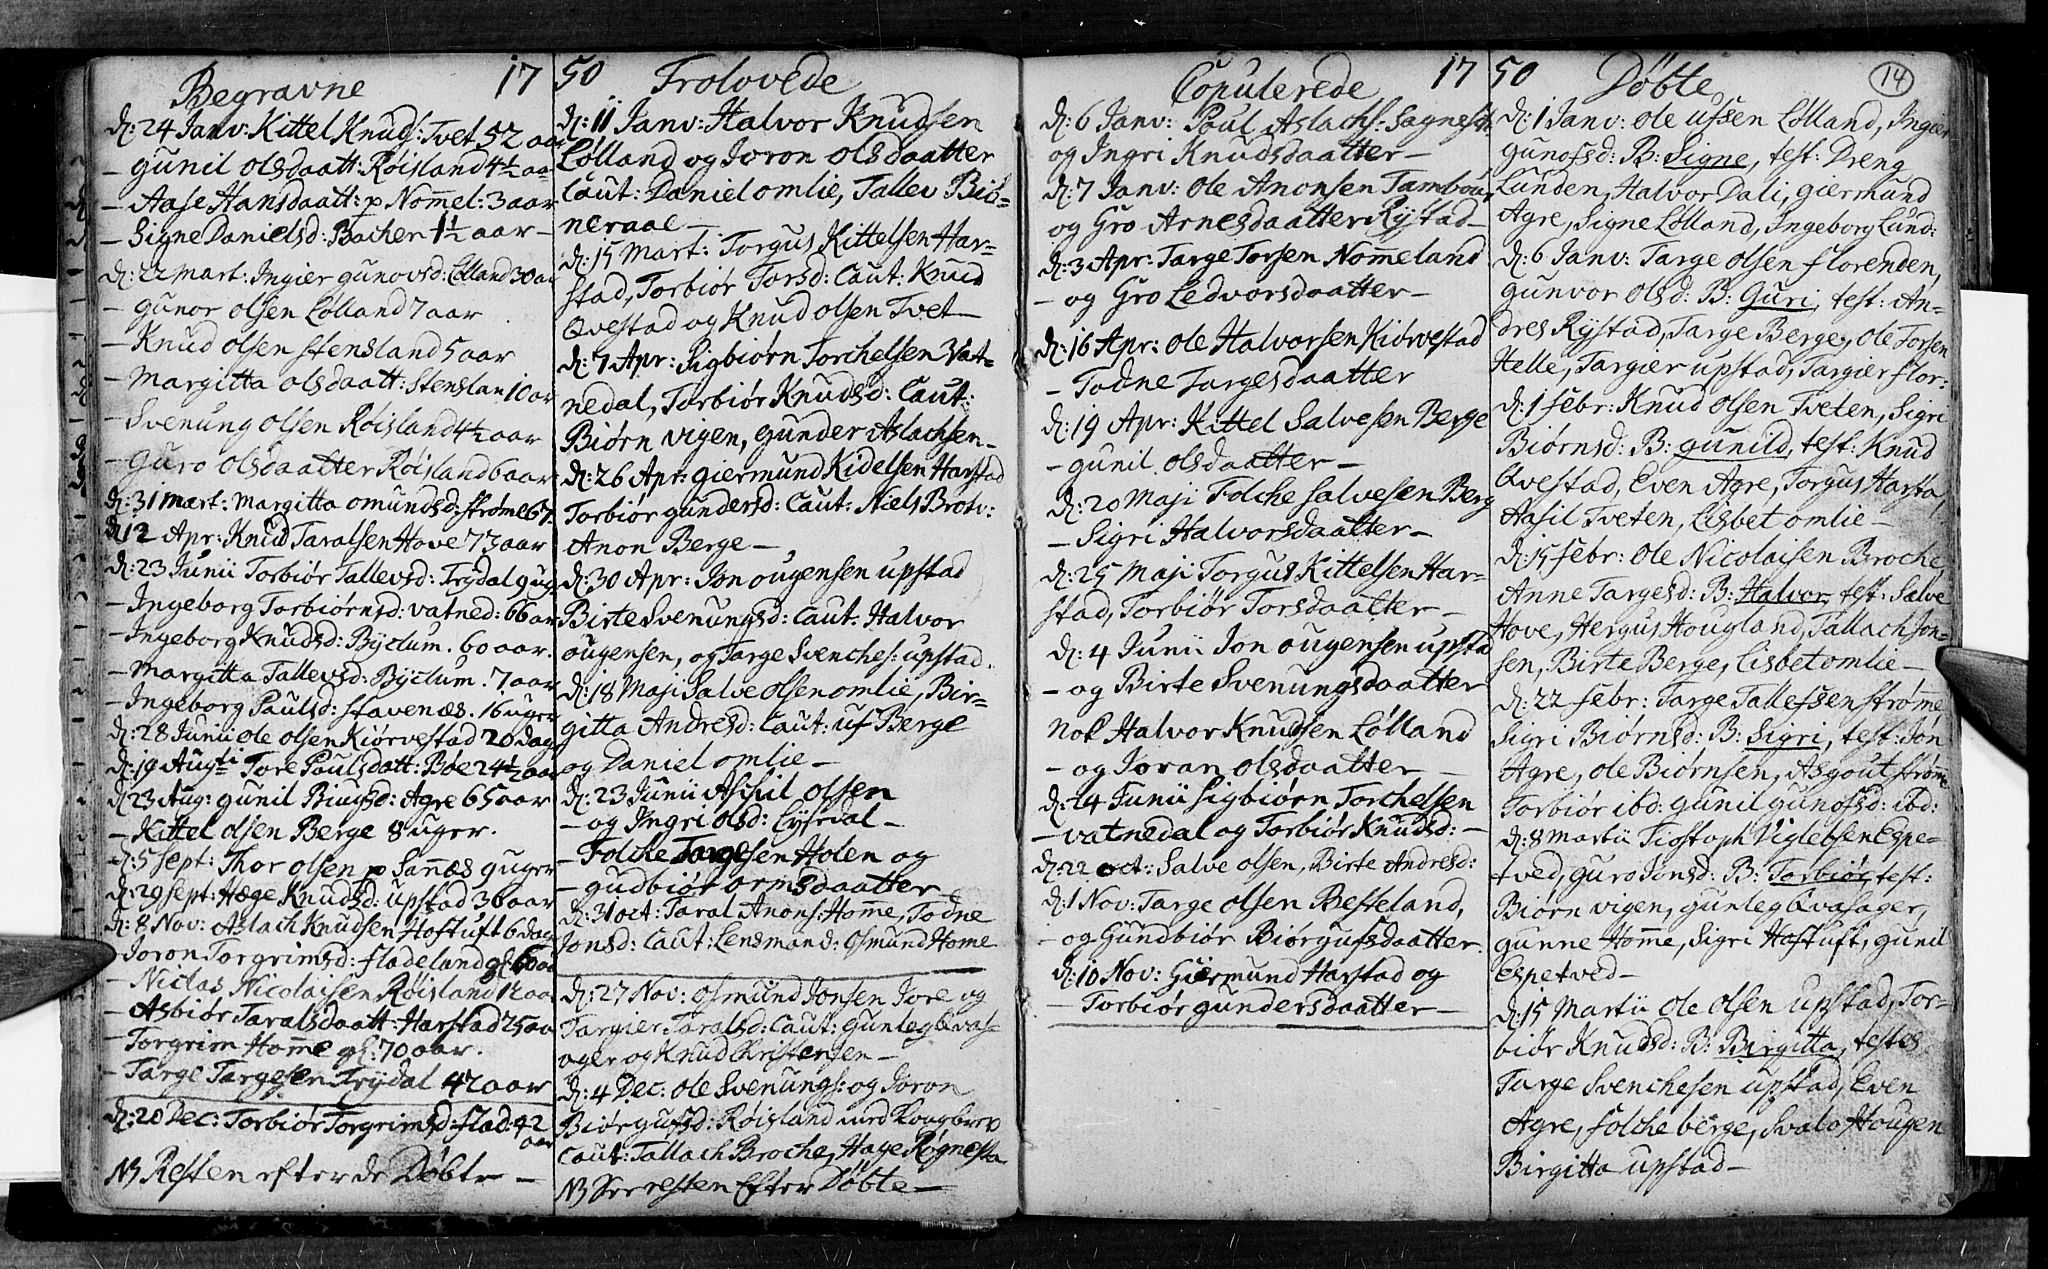 Begravne 17
d: 24 Janv: Kittel Knuds: Tvet 52 aar
– Gunil Olsdaatt: Røisland 4½ aar
– Aase Hansdaatt: p Nomel: 3 aar
– Signe Danielsd: Bachen 1½ aar –
d: 22 Mart: Ingier Gunovsd: Lølland 30 aar
– Gunor Olsen Lølland 7 aar
– Knud Olsen Stensland 5 aar
– Margitta Olsdaatt: Stenslan 10 aar
– Svenung Olsen Røisland 4½ aar
– Guro Olsdaatter Røisland 6 aar
d: 31 Mart: Margitta Omundsd: Strøme 67
d 12 Apr: Knud Taralsen Hove 73 aar
d: 23 Junii Torbiør Tallevsd: Trydal 9 ug
– Ingeborg Torbiørnsd: Vatned: 66 aar
– Ingeborg Knudsd: Byclum. 60 aar.
– Margitta Tallevsd: Byclum. 7 aar
– Ingeborg Paulsd: Stavenæs. 16 uger
d: 28 Junii Ole Olsen Kiørvestad 20 dag
d: 19 Augti Tore Paulsdatt: Boe 24½ aar
d 23 Aug: Gunil Biugsd: Agre 65 aar
– Kittel Olsen Berge 8 uger.
d: 5 Sept: Thor Olsen p Sanæs 9 uger
d: 29 Sept: Hæge Knudsd: Upstad 36 aar
d: 8 Nov: Aslach Knudsen Hoftuft 6 dag
– Joron Torgrimsd: Fladeland gl: 60 aar
– Niclas Nicolaisen Røisland 12 aar
– Asbiør Taralsdaatt: Harstad 25 aar
– Torgrim Home gl: 70 aar.
– Targe Targesen Trydal 42 aar
d: 20 Dec: Torbiør Torgrimsd: Flad: 42
aar
NB Resten efter de Døbte –
50 Trolovede
d: 11 Janv: Halvor Knudsen
Lølland og Joron Olsdaatter
Caut: Daniel Omlie, Tallev Biø=
neraae –
d: 15 Mart: Torgus Kittelsen Har=
stad, Torbiør Torsd: Caut: Knud
Qvestad og Knud Olsen Tvet –
d: 7 Apr: Sigbiørn Torchelsen Vat=
nedal, Torbiør Knudsd: Caut:
Biørn Vigen, Gunder Aslachsen –
d: 26 Apr: Giermund Kidelsen Harstad
Torbiør Gundersd: Caut: Niels Brotv:
Anon Berge –
d: 30 Apr: Jon Ougensen Upstad
Birte Svenungsd: Caut: Halvor
Ougensen, og Targe Svenches: Upstad.
d: 18 Maji Salve Olsen Omlie, Bir=
gitta Andresd: Caut: Uf Berge
og Daniel Omlie –
d: 23 Junii Aschil Olsen
– og Ingri Olsd: Lysedal –
– Folche Targesen Holen og
– Gudbiør Ormsdaatter –
d: 31 Oct: Taral Anons: Home, Todne
Jonsd: Caut: Lensmand: Osmund Home
d: 27 Nov: Osmund Jonsen Jore og
Targier Taralsd: Caut: Gunleg Qvas=
ager og Knud Christensen –
d: 4 Dec: Ole Svenungs: og Joron
Biørgufsd: Røisland med Kongbrev
Caut: Tallach Broche, Hage Røgnesta
NB See resten Efter Døbte –
Copulerede 17
d: 6 Janv: Poul Aslachs: Sagneset
og Ingri Knudsdaatter –
d: 7 Janv: Ole Anonsen Tambour
og Gro Arnesdaatter Rystad –
d: 3 Apr: Targe Torsen Nomeland
– og Gro Ledvorsdaatter –
d: 16 Apr: Ole Halvorsen Kiørvestad
– Todne Targesdaatter
d: 19 Apr: Kittel Salvesen Berge
– Gunil Olsdaatter –
d: 20 Maji Folche Salvesen Berg
– Sigri Halvorsdaatter –
d: 25 Maji Torgus Kittelsen Har=
stad, Torbiør Torsdaatter –
d: 4 Junii Jon Ougensen Upstad
– og Birte Svenungsdaatter
Nok Halvor Knudsen Lølland
– og Joran Olsdaatter –
d: 14 Junii Sigbiørn Torchelsen
– Vatnedal og Torbiør Knudsd: –
d: 22 Oct: Salve Olsen, Birte Andresd:
d: 1 Nov: Targe Olsen Besteland,
– og Gundbiør Biørgufsdaatter.
d: 10 Nov: Giermund Harstad og
– Torbiør Gundersdaatter –
50 Døbte 14
d: 1 Janv: Ole Ufsen Lølland, Ingier
Gunofsd: B: Signe, test: Dreng
Lunden, Halvor Dali, Giermund
Agre, Signe Lølland, Ingeborg Lund:
d: 6 Janv: Targe Olsen Florenden,
Gunvor Olsd: B: Guri, test: An=
dres Rystad, Targe Berge, Ole Torsen
Helle, Targier Upstad, Targier Flor:
d: 1 Febr: Knud Olsen Tveten, Sigri
Biørnsd: B: Gunild, test: Knud
Qvestad, Even Agre, Torgus Harsta,
Aasil Tveten, Lisbet Omlie –
d: 15 Febr: Ole Nicolaisen Broche
Anne Targesd: B: Halvor, test: Salve
Hove, Hergus Hougland, Tallach Jon=
sen, Birte Berge, Lisbet Omlie –
d: 22 Febr: Targe Tallefsen Strøme
Sigri Biørnsd: B: Sigri, test: Jon
Agre, Ole Biørnsen, Asgout Strøme
Torbiør ibd: Gunil Gunofsd: ibd:
d: 8 Martii Tiostoph Viglebsen Espe=
tved, Guro Jonsd: B: Torbiør, test:
Biørn Vigen, Gunleg Qvasager,
Gunne Home, Sigri Hoftuft, Gunil
Espetved –
d: 15 Martii Ole Olsen Upstad, Tor=
biør Knudsd: B: Birgitta, testes
Targe Svenchesen Upstad, Even
Agre, Folche Berge, Svalo Hougen
Birgitta Upstad –